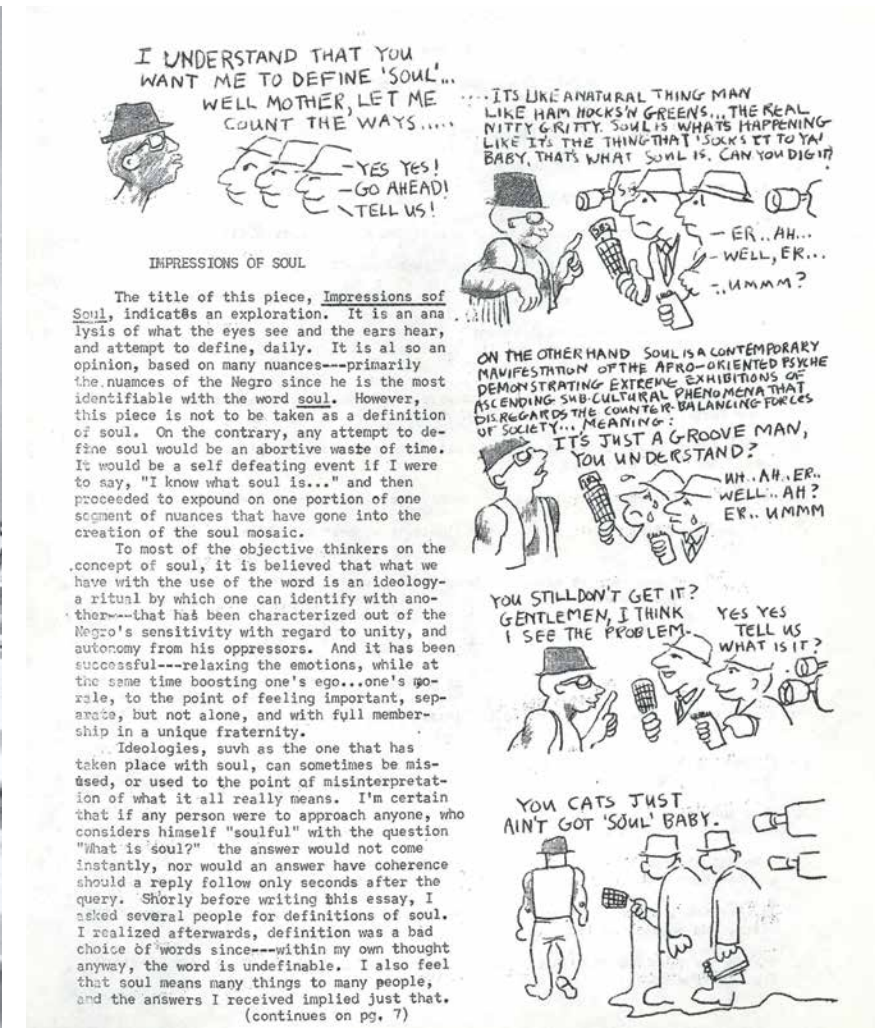 I UNDERSTAND THAT YOU
WANT ME TO DEFINE 'SOUL'...
WELL MOTHER, LET ME
COUNT THE WAYS.....
-YES YES!
-GO AHEAD!
TELL US!
IMPRESSIONS OF SOUL
The title of this piece, Impressions sof
Soul, indicates an exploration. It is an ana
lysis of what the eyes see and the ears hear,
and attempt to define, daily. It is al so an
opinion, based on many nuances---primarily
the nuamces of the Negro since he is the most
identifiable with the word soul. However,
this piece is not to be taken as a definition
of soul. On the contrary, any attempt to de-
fine soul would be an abortive waste of time.
It would be a self defeating event if I were
to say, "I know what soul is..." and then
proceeded to expound on one portion of one
segment of nuances that have gone into the
creation of the soul mosaic.
To most of the objective thinkers on the
concept of soul, it is believed that what we
have with the use of the word is an ideology-
a ritual by which one can identify with ano-
ther---that has been characterized out of the
Negro's sensitivity with regard to unity, and
autonomy from his oppressors. And it has been
successful---relaxing the emotions, while at
the same time boosting one's ego...one's mo-
rale, to the point of feeling important, sep-
arate, but not alone, and with full member-
ship in a unique fraternity.
Ideologies, suvh as the one that has
taken place with soul, can sometimes be mis-
used, or used to the point of misinterpretat-
ion of what it all really means. I'm certain
that if any person were to approach anyone, who
considers himself "soulful" with the question
"What is soul?" the answer would not come
instantly, nor would an answer have coherence
should a reply follow only seconds after the
query. Shorly before writing this essay, I
asked several people for definitions of soul.
I realized afterwards, definition was a bad
choice of words since---within my own thought
anyway, the word is undefinable. I also feel
that soul means many things to many people,
and the answers I received implied just that.
(continues on pg. 7)
....ITS LIKE A NATURAL THING MAN
LIKE HAM HOCKS 'N GREENS...THE REAL
NITTY GRITTY. SOUL IS WHATS HAPPENING
LIKE IT'S THE THING THAT 'SOCKS IT TO YA'
BABY, THAT'S WHAT SOUL IS. CAN YOU DIG IT?
- ER..AH...
- WELL, ER...
-..UMMM?
ON THE OTHER HAND SOUL IS A CONTEMPORARY
MANIFESTATION OF THE AFRO-ORIENTED PSYCHE
DEMONSTRATING EXTREME EXHIBITIONS OF
ASCENDING SUB-CULTURAL PHENOMENA THAT
DISREGARDS THE COUNTER-BALANCING FORCES
OF SOCIETY... MEANING:
IT'S JUST A GROOVE MAN,
YOU UNDERSTAND?
-UH..AH..ER..
WELL.. AH?
ER.. UMMM
YOU STILL DON'T GET IT?
GENTLEMEN, I THINK
I SEE THE PROBLEM-
YES YES
TELL US
WHAT IS IT?
YOU CATS JUST
AIN'T GOT 'SOUL' BABY.